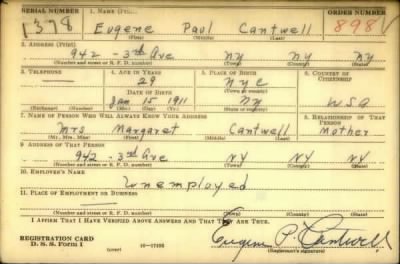 SERIAL NUMBER 1. NAME (Print) ORDER NUMBER
1378 Eugene Paul Cantwell 898 V
(First) (Middle) (Last)
2. ADDRESS (Print)
942 - 3rd Ave NY NY NY
(Number and street or R. F. D. number) (Town) (County) (State)
3. TELEPHONE 4. AGE IN YEARS 5. PLACE OF BIRTH 6. COUNTRY OF CITIZENSHIP
29 NYC
DATE OF BIRTH (Town or county)
Jan 15 1911 NY USA
(Exchange) (Number) (Mo.) (Day) (Yr.) (State or country)
7. NAME OF PERSON WHO WILL ALWAYS KNOW YOUR ADDRESS 8. RELATIONSHIP OF THAT PERSON
Mrs Margaret Cantwell Mother
(Mr., Mrs., Miss) (First) (Middle) (Last)
9. ADDRESS OF THAT PERSON
942 - 3rd Ave NY NY NY
(Number and street or R. F. D. number) (Town) (County) (State)
10. EMPLOYER'S NAME
Unemployed
11. PLACE OF EMPLOYMENT OR BUSINESS
(Number and street or R. F. D. number) (Town) (County) (State)
I AFFIRM THAT I HAVE VERIFIED ABOVE ANSWERS AND THAT THEY ARE TRUE.
REGISTRATION CARD Eugene P. Cantwell
D. S. S. Form 1 (over) (Registrant's signature)